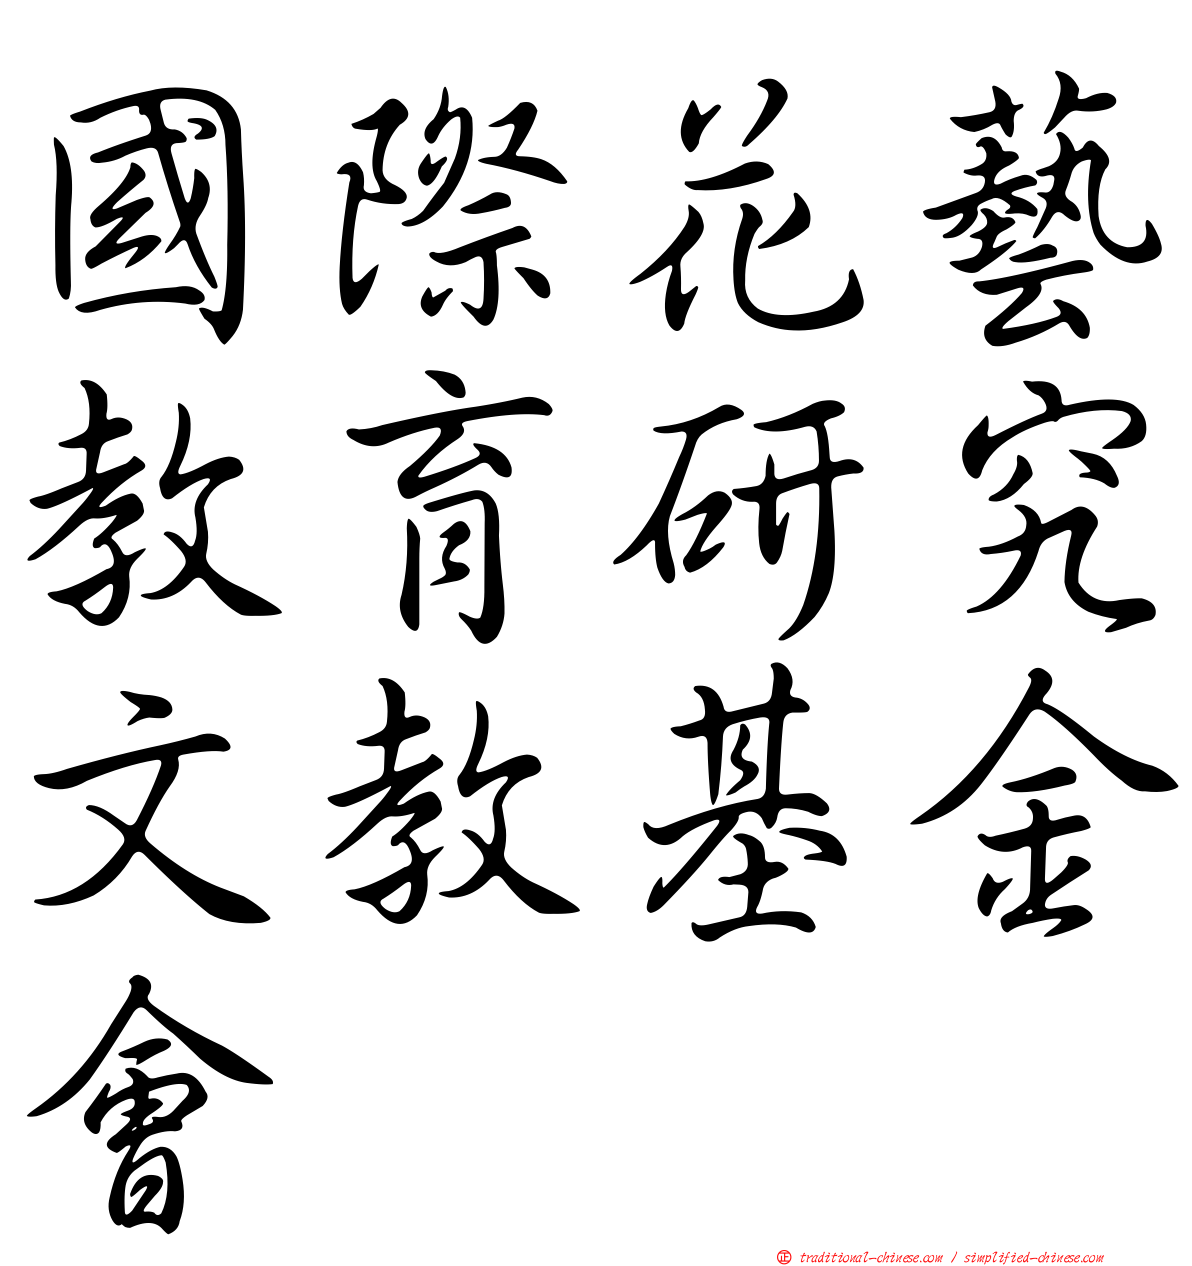 國際花藝
教育研究
文教基金
會
正 traditional-chinese.com / simplified-chinese.com